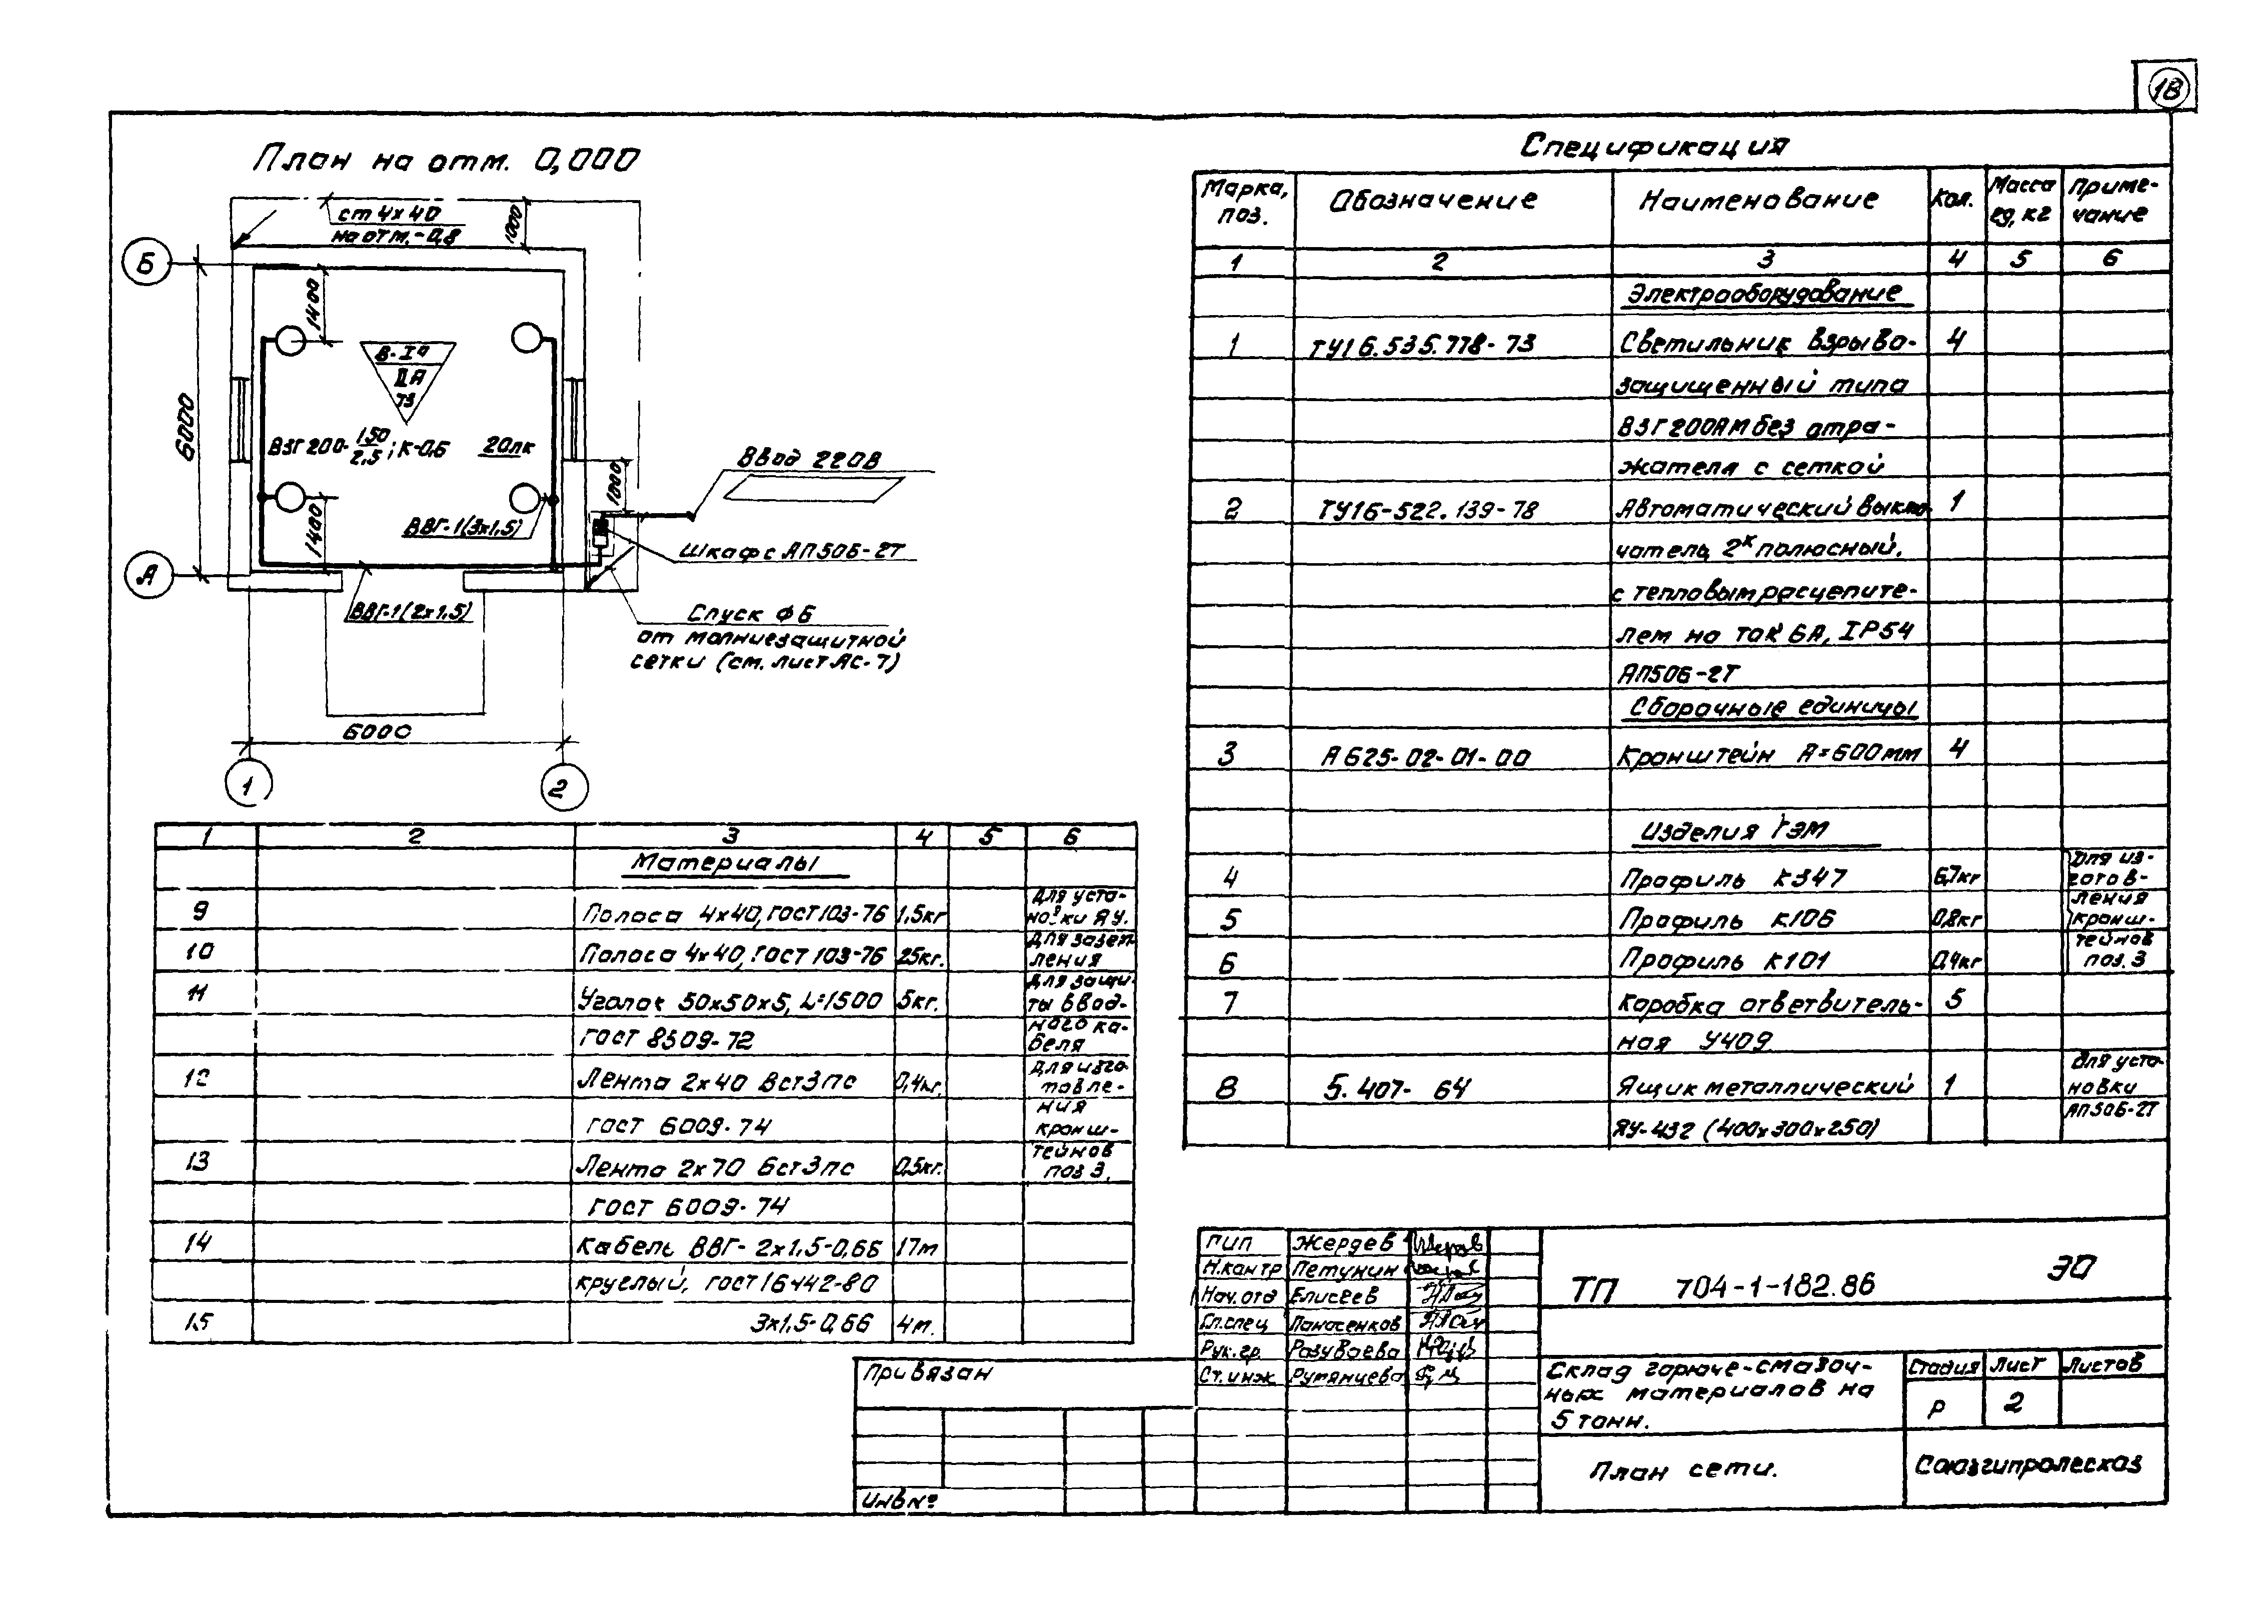 18
План на отм. 0,000
ст 4х40
на отм. -0,8
1000
Б
1400
6000
В-Iа
II А
Т3
ВЗГ200- 150/2,5 ; К-0,6 20лк
1000
Ввод 220В
1400
ВВГ-1(3х1,5)
Шкаф с АП50Б-2Т
А
ВВГ-1(2х1,5)
Спуск Ф6
от молниезащитной
сетки (см. лист АС-7)
6000
1 2
Спецификация
Марка, поз. Обозначение Наименование Кол. Масса ед, кг Примечание
1 2 3 4 5 6
Электрооборудование
1 ТУ16.535.778-73 Светильник взрыво- 4
защищенный типа
ВЗГ200АМ без отра-
жателя с сеткой
2 ТУ16-522.139-78 Автоматический выклю- 1
чатель 2х полюсный,
с тепловым расцепите-
лем на ток 6А, IP54
АП50Б-2Т
Сборочные единицы
3 А625-02-01-00 Кронштейн А=600мм 4
Изделия ГЭМ
4 Профиль К347 6,7кг Для из-
готов-
ления
5 Профиль К106 0,8кг кронш-
тейнов
6 Профиль К101 0,4кг поз. 3
7 Коробка ответвитель- 5
ная У409
8 5.407-64 Ящик металлический 1 Для уста-
новки
ЯУ-432 (400х300х250) АП50Б-2Т
1 2 3 4 5 6
Материалы
9 Полоса 4х40, ГОСТ 103-76 1,5кг Для уста-
новки ЯУ.
10 Полоса 4х40, ГОСТ 103-76 25кг. Для зазем-
ления
11 Уголок 50х50х5, L=1500 5кг. Для защи-
ты ввод-
ГОСТ 8509-72 ного ка-
беля
12 Лента 2х40 Вст3пс 0,4кг. Для изго-
товле-
ГОСТ 6009-74 ния
кронш-
13 Лента 2х70 Бст3пс 0,5кг. тейнов
поз 3.
ГОСТ 6009-74
14 Кабель ВВГ-2х1,5-0,66 17м
круглый, ГОСТ 16442-80
15 3х1,5-0,66 4м.
ГИП Жердев
Н.контр Петунин
Нач.отд Елисеев
Гл.спец Панасенков
Рук.гр. Разуваева
Ст.инж Румянцева
Привязан
Инв №
ТП 704-1-182.86 ЭО
Склад горюче-смазоч-
ных материалов на
5 тонн.
Стадия Лист Листов
Р 2
План сети.
Союзгипролесхоз